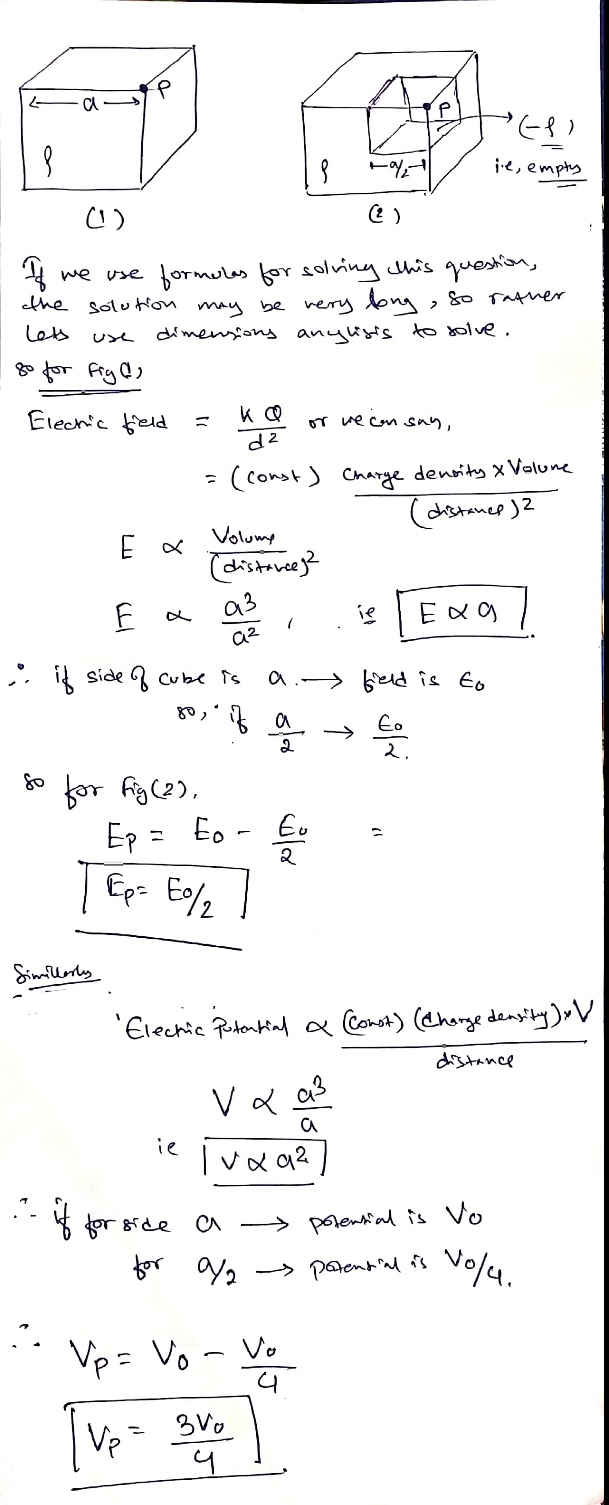 a P
ρ
(1)
P
ρ a/2 (-ρ)
i.e, empty
(2)
If we use formulas for solving this question,
the solution may be very long, so rather
lets use dimensions anylisis to solve.
so for fig (1),
Electric field = KQ/d² or we can say,
= (const) Charge density x Volume/(distance)²
E ∝ Volume/(distance)²
E ∝ a³/a² , . ie E ∝ a
∴ if side of cube is a. → field is E₀
so, if a/2 → E₀/2.
so for fig (2),
Ep = E₀ - E₀/2 =
Ep = E₀/2
Similarly
Electric Potential ∝ (Const) (Charge density) x V/distance
V ∝ a³/a
ie V ∝ a²
∴ if for side a → potential is V₀
for a/2 → potential is V₀/4.
∴ Vp = V₀ - V₀/4
Vp = 3V₀/4